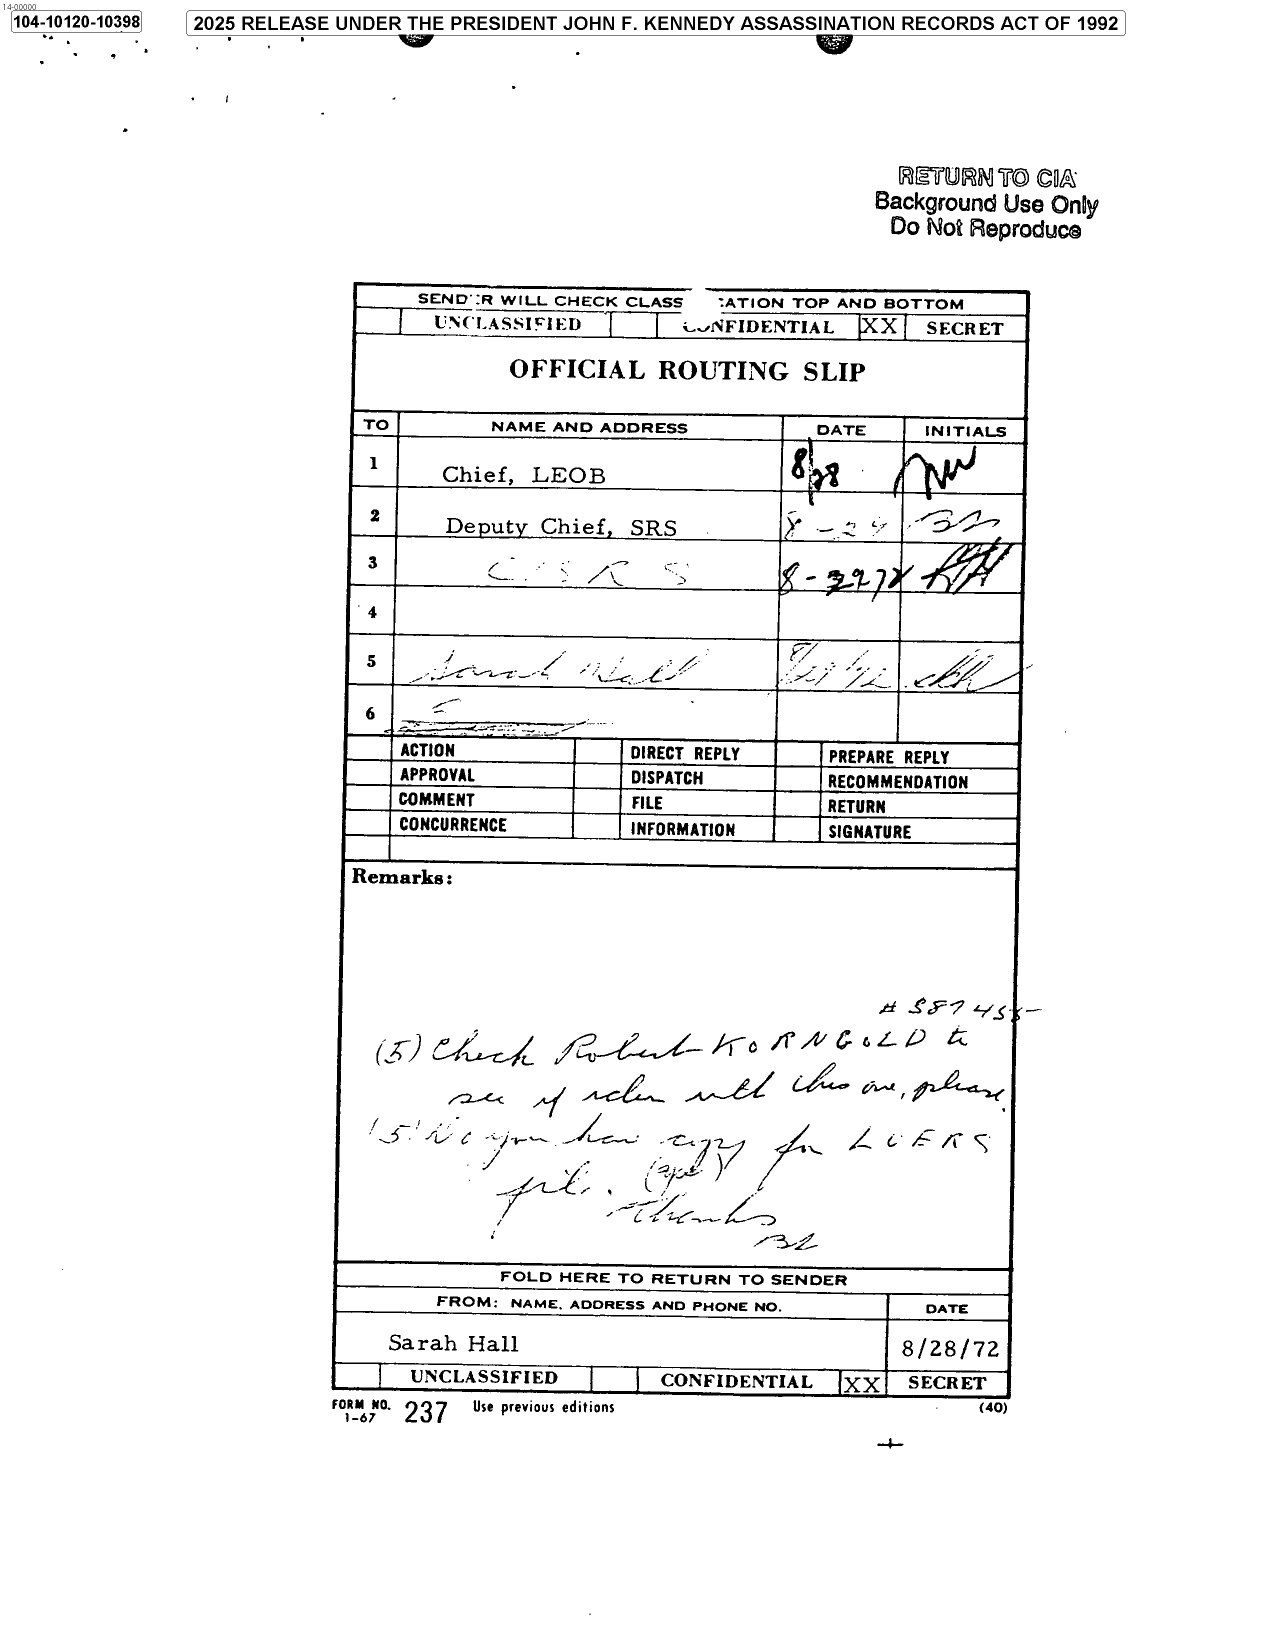 14-00000
104-10120-10398
2025 RELEASE UNDER THE PRESIDENT JOHN F. KENNEDY ASSASSINATION RECORDS ACT OF 1992
RETURN TO CIA
Background Use Only
Do Not Reproduce
SENDER WILL CHECK CLASS ATION TOP AND BOTTOM
UNCLASSIFIED CONFIDENTIAL XX SECRET
OFFICIAL ROUTING SLIP
TO NAME AND ADDRESS DATE INITIALS
1 Chief, LEOB 8/28
2 Deputy Chief, SRS 8-29 BL
3 C/SRS 8-2972
4
5 Sarah Hall
6
ACTION DIRECT REPLY PREPARE REPLY
APPROVAL DISPATCH RECOMMENDATION
COMMENT FILE RETURN
CONCURRENCE INFORMATION SIGNATURE
Remarks:
(5) Check Robert KORNGOLD to
see if iden with this one, please.
(5) Do you have copy for LUERS
file.
Thanks
BL
FOLD HERE TO RETURN TO SENDER
FROM: NAME, ADDRESS AND PHONE NO. DATE
Sarah Hall 8/28/72
UNCLASSIFIED CONFIDENTIAL XX SECRET
FORM NO. 237 Use previous editions (40)
1-67